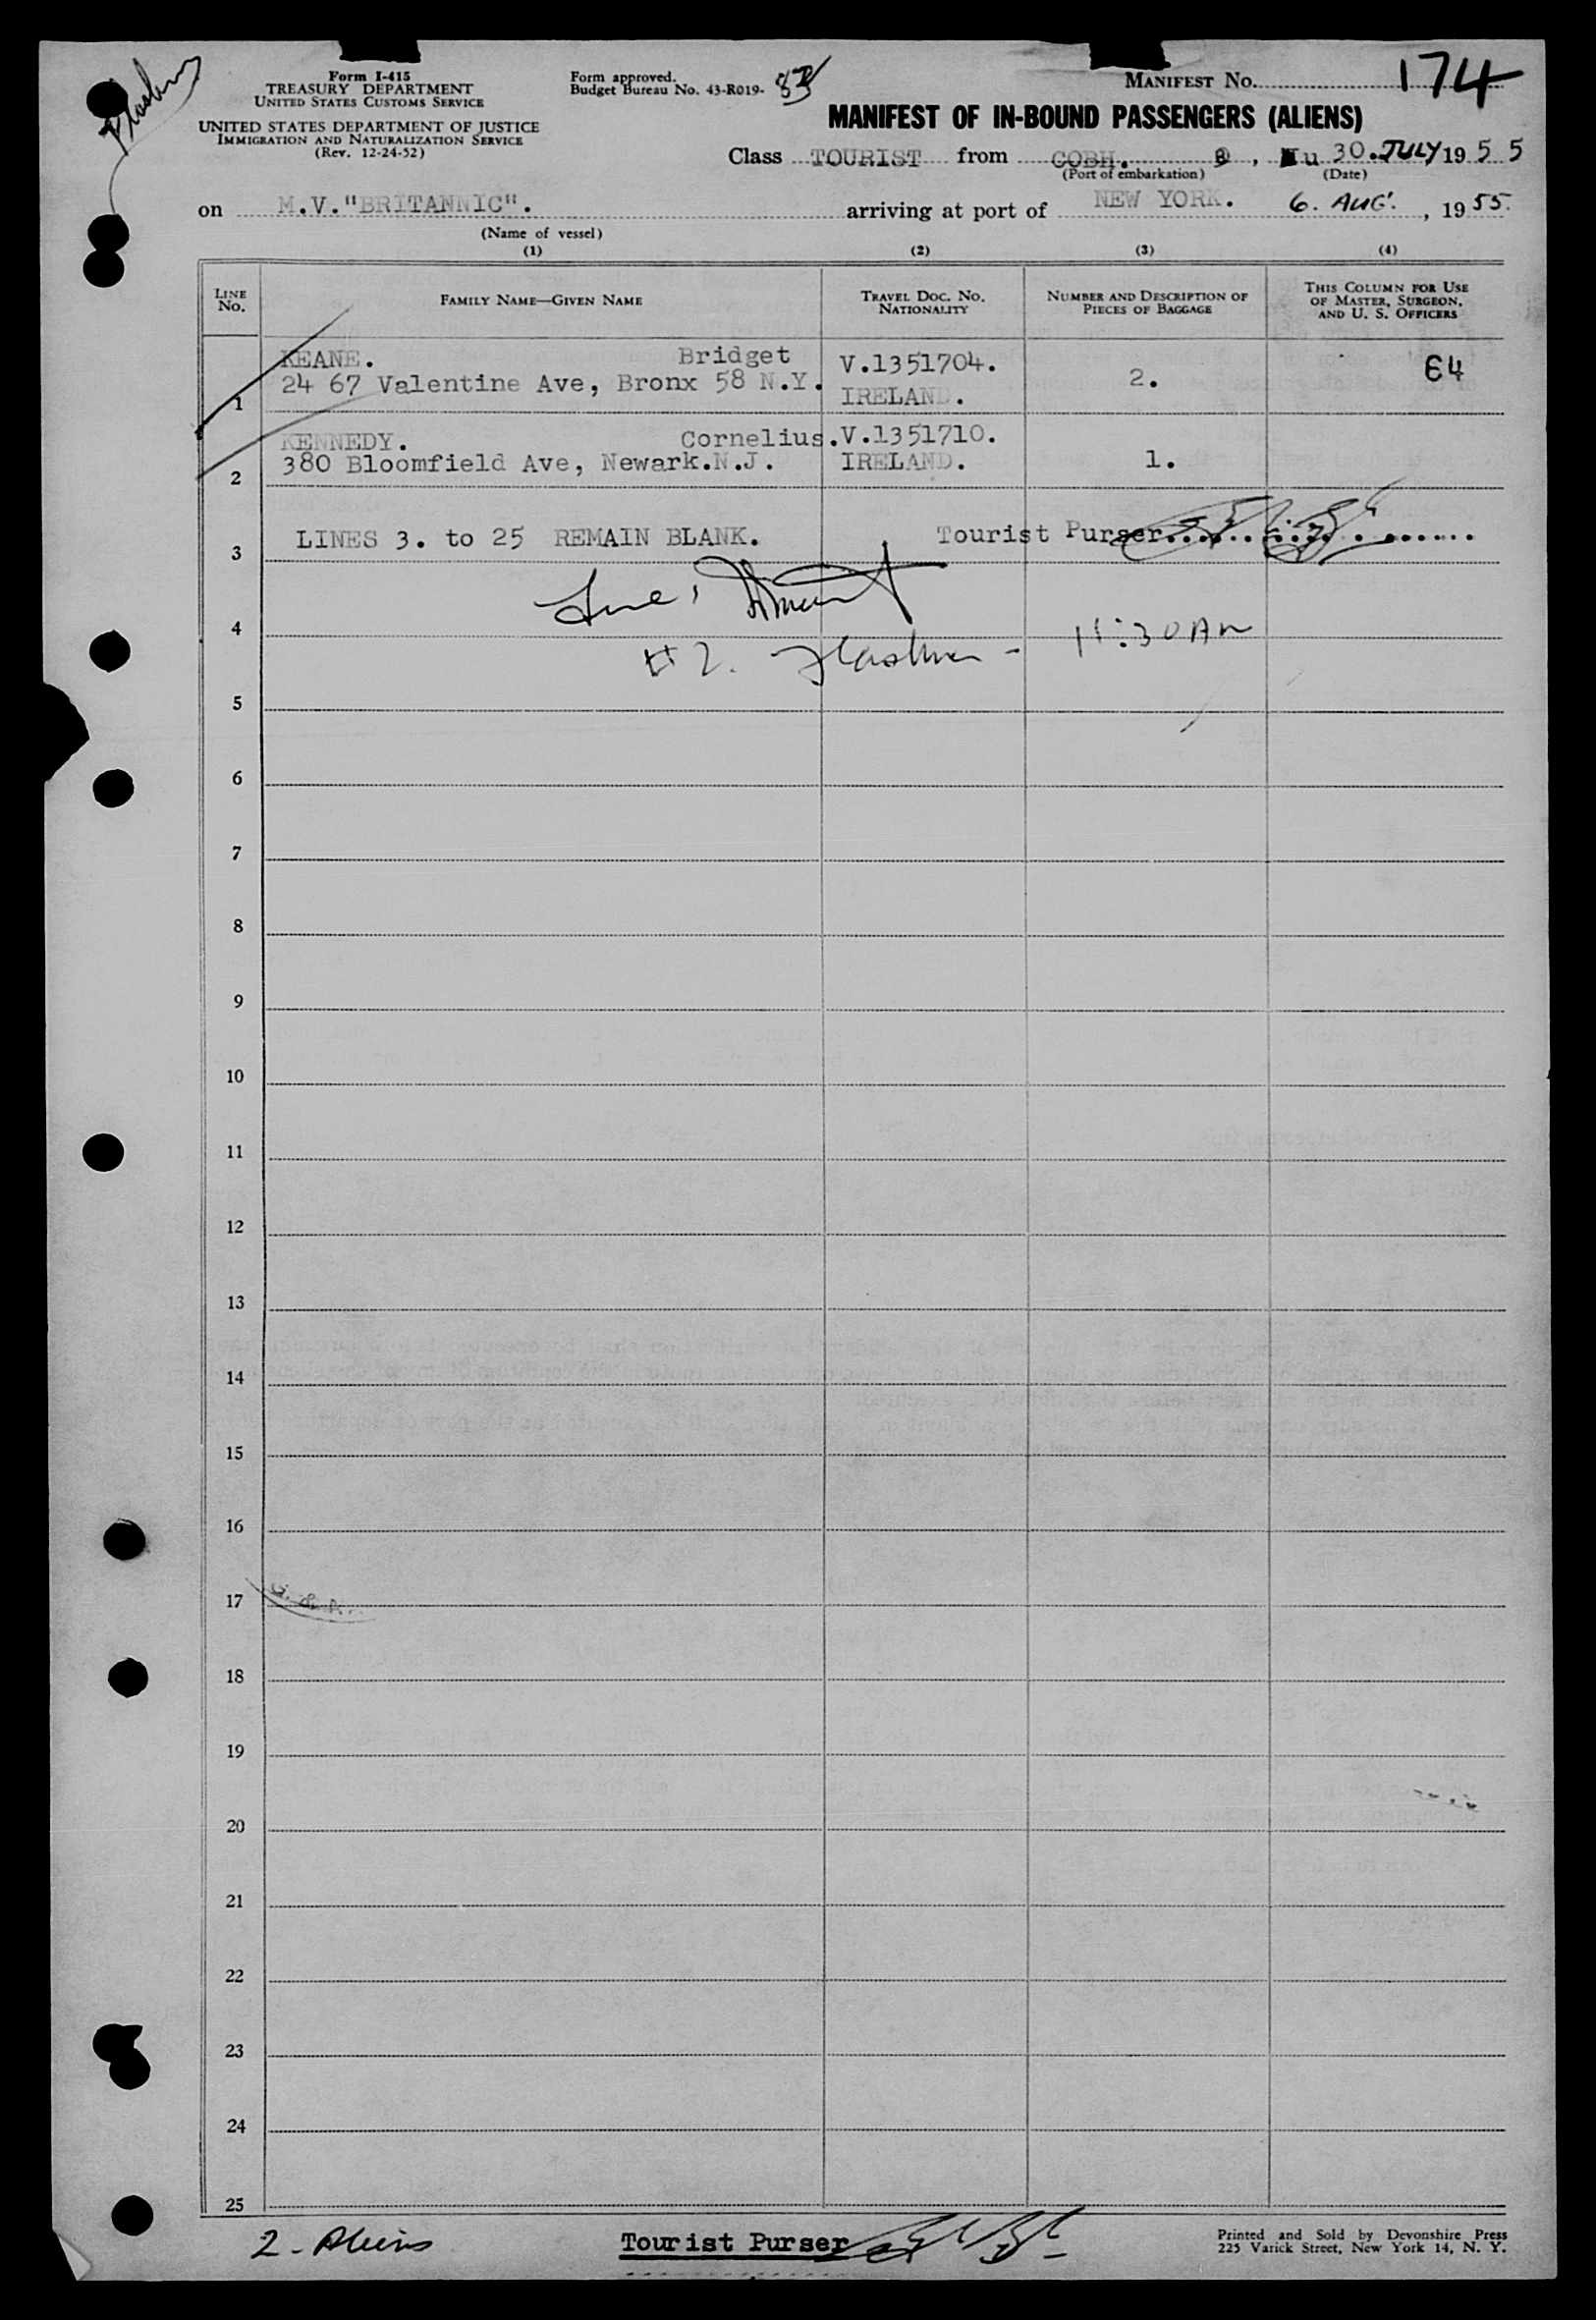 Form I-415
TREASURY DEPARTMENT
UNITED STATES CUSTOMS SERVICE
UNITED STATES DEPARTMENT OF JUSTICE
IMMIGRATION AND NATURALIZATION SERVICE
(Rev. 12-24-52)
Form approved.
Budget Bureau No. 43-R019-
MANIFEST No. 174
MANIFEST OF IN-BOUND PASSENGERS (ALIENS)
Class TOURIST from COBH. , 30.JULY 1955
(Port of embarkation) (Date)
on M.V."BRITANNIC". arriving at port of NEW YORK. 6. AUG. , 1955.
(Name of vessel)
(1) (2) (3) (4)
LINE No. FAMILY NAME—GIVEN NAME TRAVEL DOC. No. NATIONALITY NUMBER AND DESCRIPTION OF PIECES OF BAGGAGE THIS COLUMN FOR USE OF MASTER, SURGEON, AND U. S. OFFICERS
KEANE. Bridget V.1351704. 64
24 67 Valentine Ave, Bronx 58 N.Y. 2.
1 IRELAND.
KENNEDY. Cornelius. V.1351710.
380 Bloomfield Ave, Newark.N.J. IRELAND. 1.
2
LINES 3. to 25 REMAIN BLANK. Tourist Purser
3
4 11:30 AM
#2.
5
6
7
8
9
10
11
12
13
14
15
16
17
18
19
20
21
22
23
24
25
2 - Aliens Tourist Purser
Printed and Sold by Devonshire Press
225 Varick Street, New York 14, N. Y.